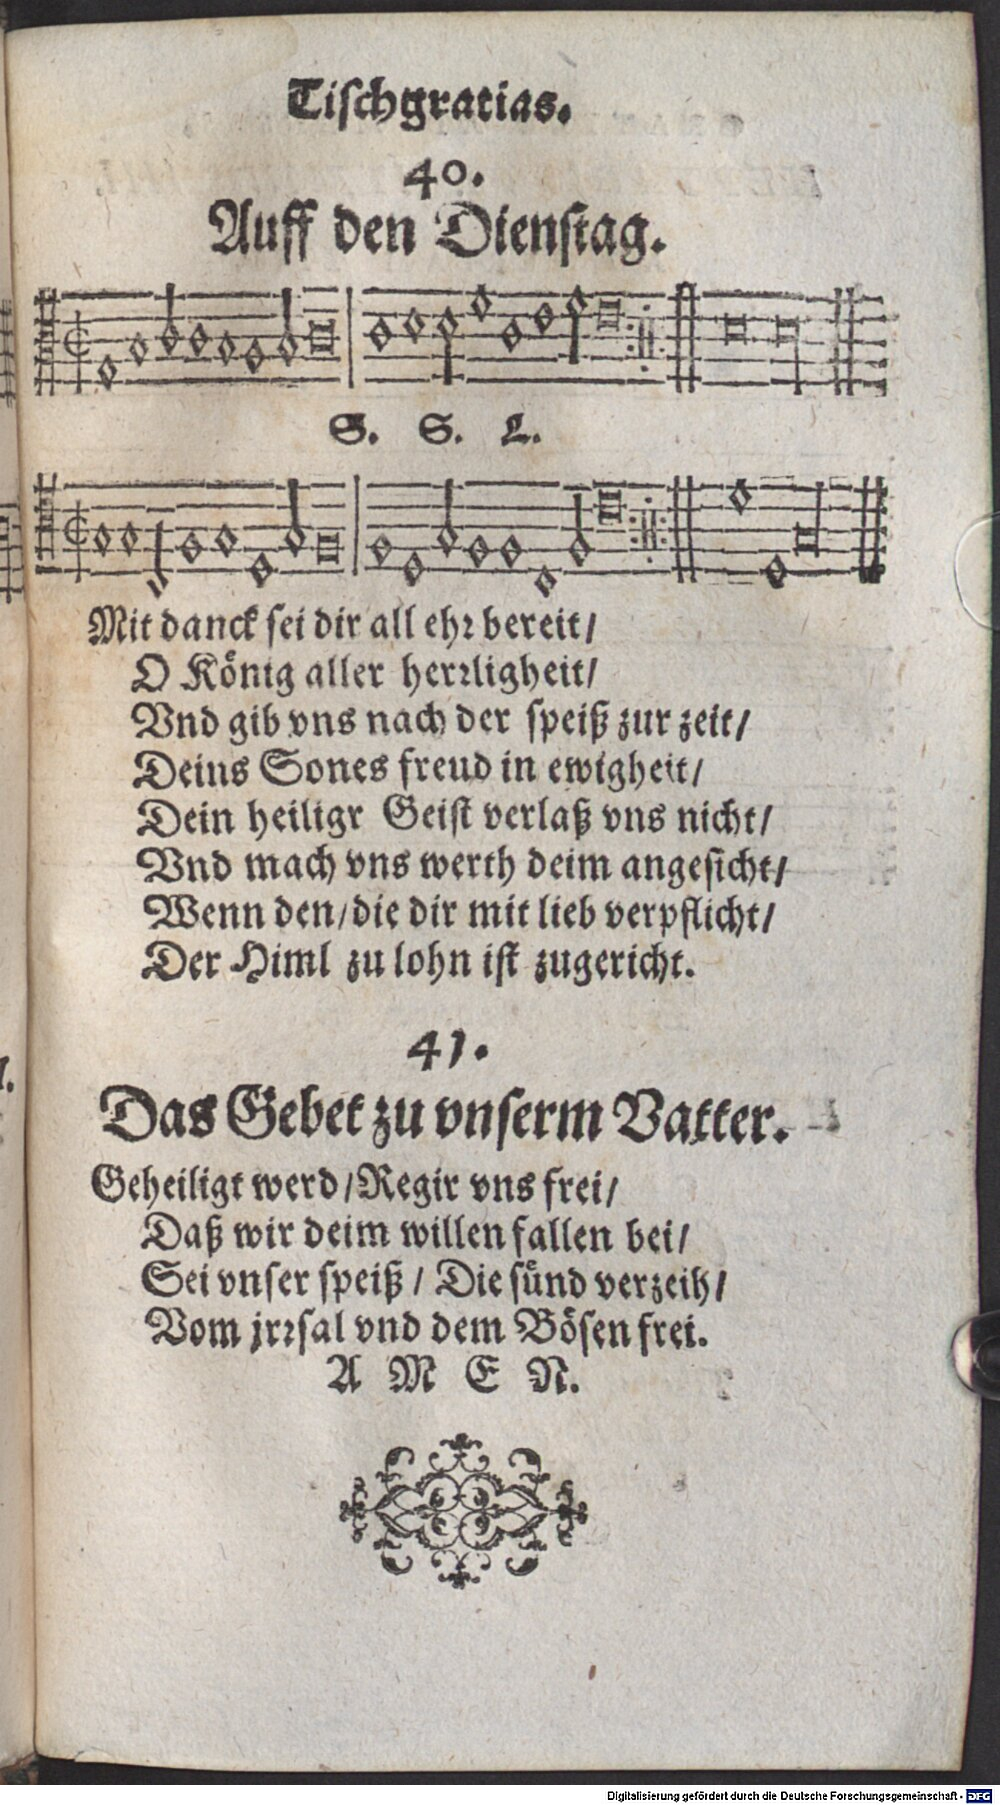 Tiſchgratias.
40.
Auff den Dienſtag.
S. S. L.
Mit danck ſei dir all ehꝛ bereit/
O Koͤnig aller herꝛligheit/
Vnd gib vns nach der ſpeiß zur zeit/
Deins Sones freud in ewigheit/
Dein heiligr Geiſt verlaß vns nicht/
Vnd mach vns werth deim angeſicht/
Wenn den/die dir mit lieb verpflicht/
Der Himl zu lohn iſt zugericht.
41.
Das Gebet zu vnſerm Vatter.
Geheiligt werd/Regir vns frei/
Daß wir deim willen fallen bei/
Sei vnſer ſpeiß/ Die ſuͤnd verzeih/
Vom jrꝛſal vnd dem Boͤſen frei.
A M E N.
Digitalisierung gefördert durch die Deutsche Forschungsgemeinschaft - DFG